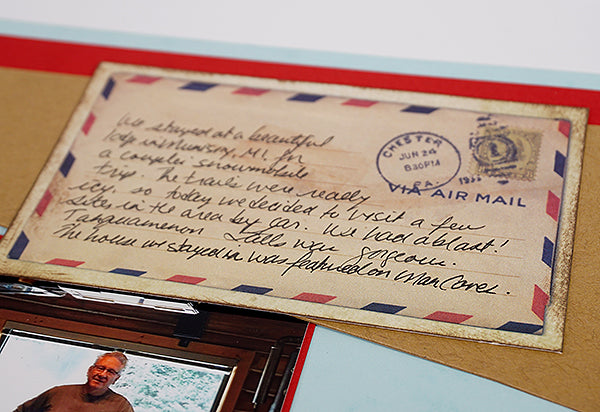 We stayed at a beautiful
lodge in Munising, MI. for
a couples snowmobile
trip. The trails were really
icy. so today we decided to visit a few
sites in the area by car. We had a blast!
Tahquamenon Falls was gorgeous.
The house we stayed in was featured on Man Caves.
CHESTER
JUN 24
830PM
PA.
VIA AIR MAIL